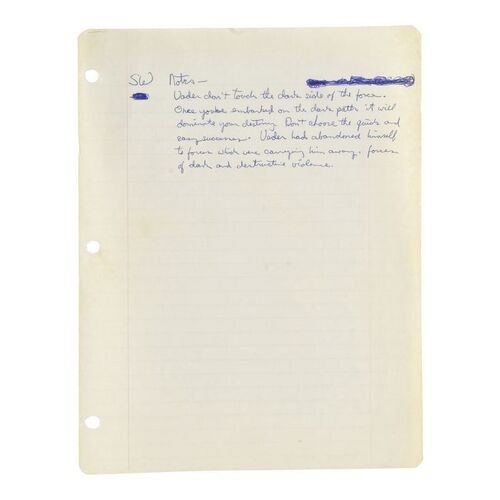 SW Notes—
Vader don't touch the dark side of the force.
Once you've embarked on the dark path it will
dominate your destiny. Don't choose the quick and
easy successes. Vader had abandoned himself
to forces which were carrying him away. forces
of dark and destructive violence.